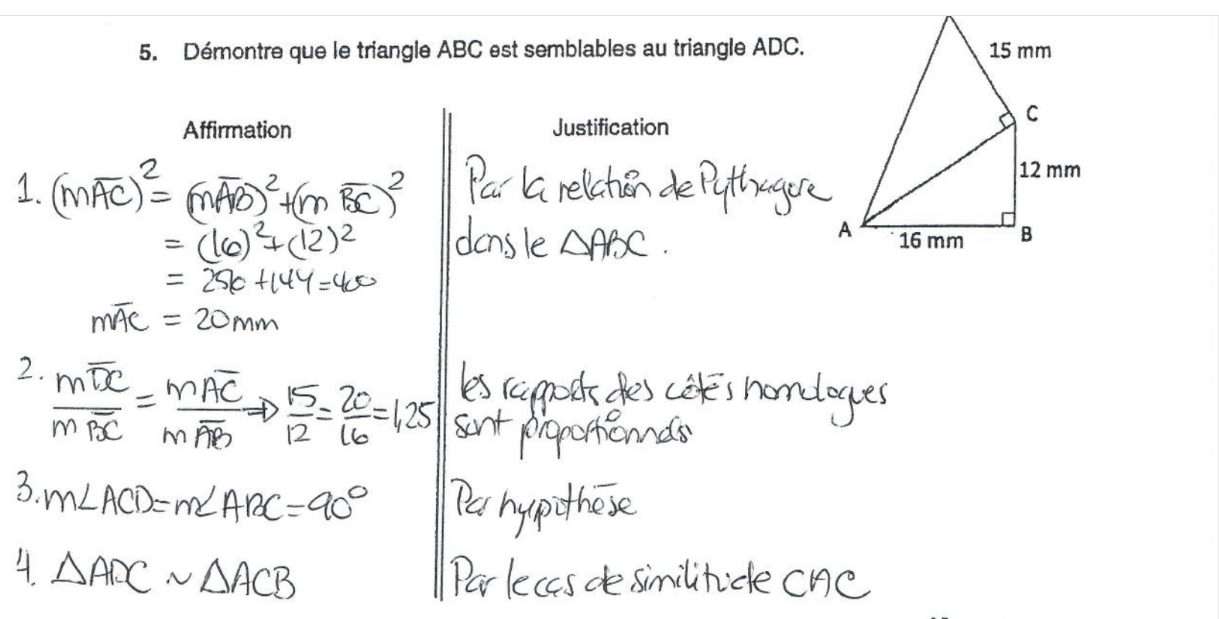 5. Démontre que le triangle ABC est semblables au triangle ADC.
15 mm
C
12 mm
A
16 mm
B
Affirmation
Justification
1. (mAC)² = (mAB)² + (m BC)²
= (16)² + (12)²
= 256 + 144 = 400
mAC = 20 mm
Par la relation de Pythagore
dans le ΔABC.
2. mDC / mBC = mAC / mAB → 15/12 = 20/16 = 1,25
les rapports des côtés homologues
sont proportionnels
3. m∠ACD = m∠ABC = 90°
Par hypothèse
4. ΔADC ~ ΔACB
Par le cas de similitude CAC